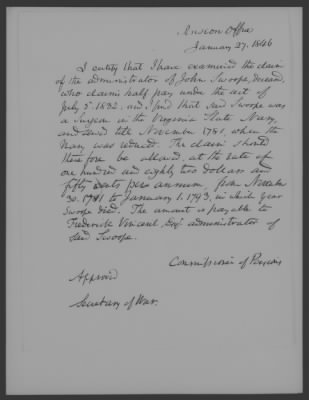 Pension Office
January 27, 1846
I certify that I have examined the claim
of the administrator of John Swoope, deceased,
who claims half pay under the act of
July 5, 1832. and find that said Swoope was
a Surgeon in the Virginia State Navy,
and served till November 1781, when the
Navy was reduced. The claim should
therefore be allowed, at the rate of
one hundred and eighty two dollars and
fifty cents per annum, from November
30. 1781 to January 1. 1793, in which year
Swoope died. The amount is payable to
Frederick Vincent Esqr administrator of
said Swoope.
Commissioner of Pensions
Approved
Secretary of War.